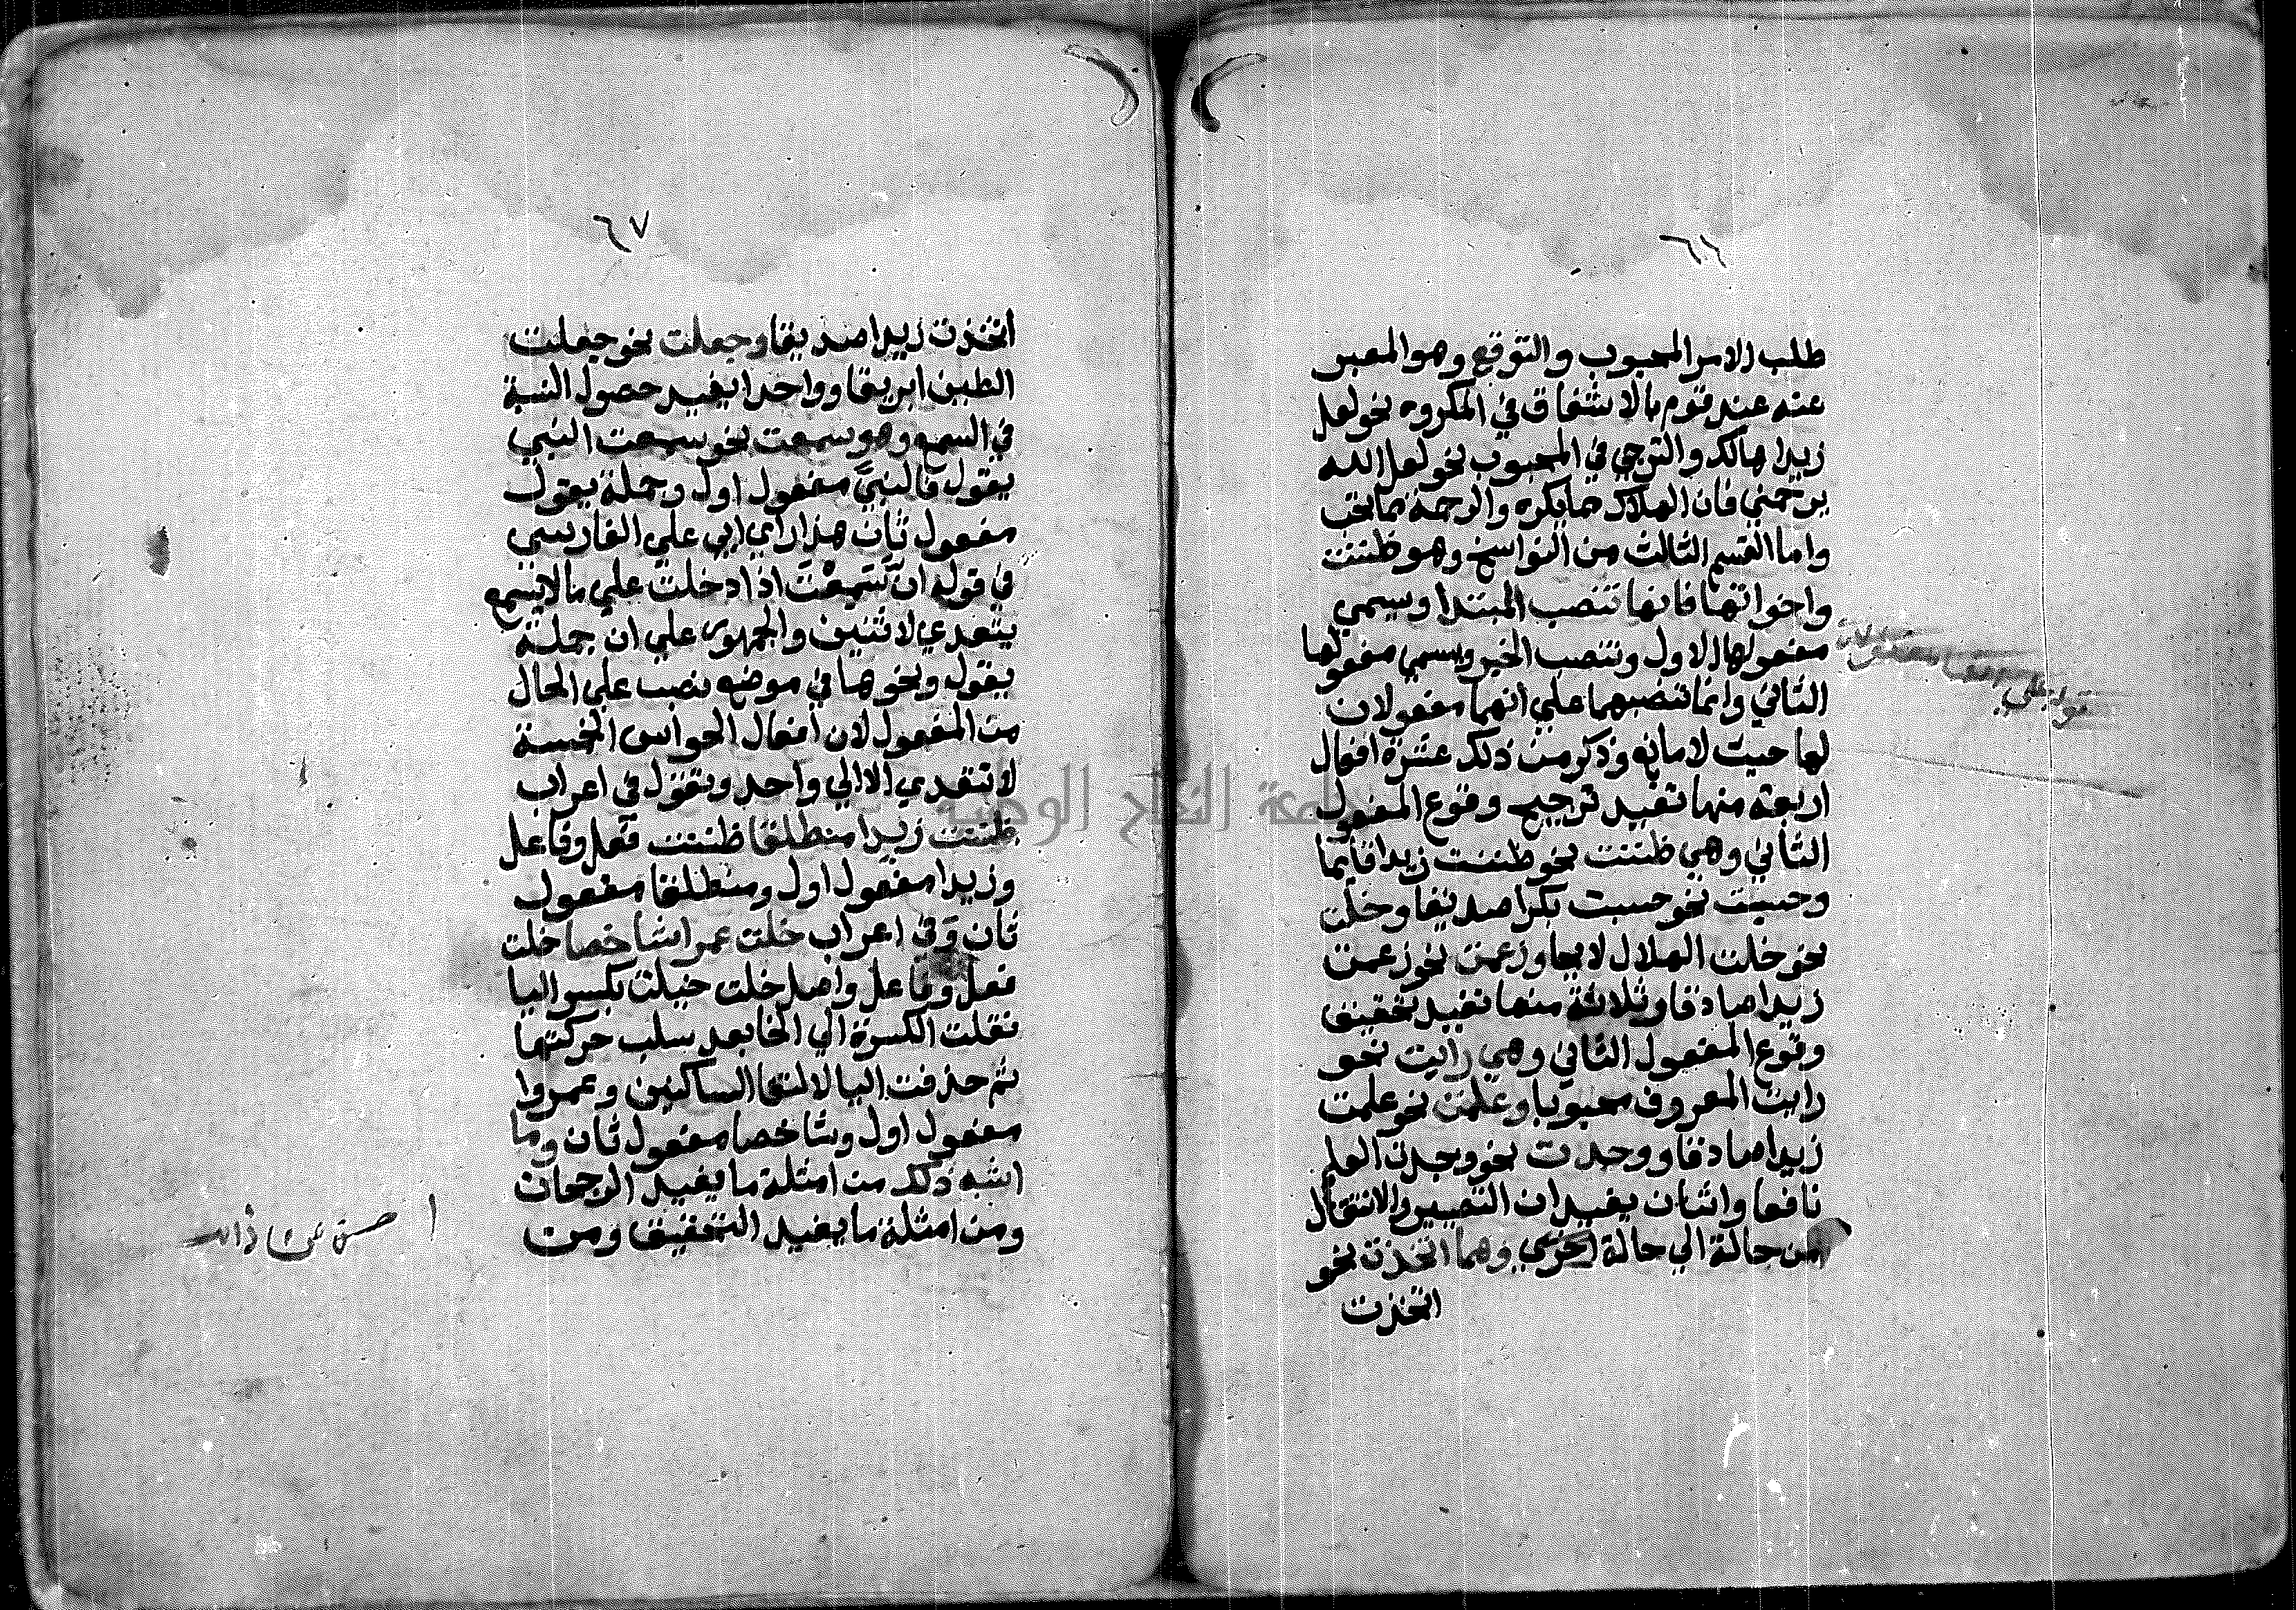 ٦٦
طلب الامر المحبوب والتوقع وهو المعبر
عنه عند قوم بالاشفاق في المكروه نحو لعل
زيدا هالك والترجي في المحبوب نحو لعل الله
يرحمني فان الهلاك مما يكره والرحمة مما يحب
واما القسم الثالث من النواسخ وهو ظننت
واخواتها فانها تنصب المبتدا ويسمي
مفعولها الاول وتنصب الخبر ويسمي مفعولها
الثاني وانما تنصبهما علي انهما مفعولان
لها حيث لا مانع وذكر من ذلك عشرة افعال
اربعة منها تفيد ترجيح وقوع المفعول
الثاني وهي ظننت نحو ظننت زيدا قايما
وحسبت نحو حسبت بكرا صديقا وخلت
نحو خلت الهلال لايحا وزعمت نحو زعمت
زيدا صادقا وثلاثة منها تفيد تحقيق
وقوع المفعول الثاني وهي رايت نحو
رايت المعروف محبوبا وعلمت نحو علمت
زيدا صادقا ووجدت نحو وجدت العلم
نافعا واثنان يفيدان التصيير والانتقال
من حالة الي حالة اخري وهما اتخذت نحو
اتخذت
٦٧
اتخذت زيدا صديقا وجعلت نحو جعلت
الطين ابريقا وواحدا يفيد حصول النسبة
في السمع وهو سمعت نحو سمعت النبي
يقول فالنبي مفعول اول وجملة يقول
مفعول ثان هذا راي ابي علي الفارسي
في قوله ان سمعت اذا دخلت علي مالا يسمع
يتعدي لاثنين والجمهور علي ان جملة
يقول ونحوها في موضع نصب علي الحال
من المفعول لان افعال الحواس الخمسة
لا تتعدي الا الي واحد وتقول في اعراب
ظننت زيدا منطلقا ظننت فعل وفاعل
وزيدا مفعول اول ومنطلقا مفعول
ثان وفي اعراب خلت عمرا شاخصا خلت
فعل وفاعل واصل خلت خيلت بكسر اليا
نقلت الكسرة الي الخا بعد سلب حركتها
ثم حذفت اليا لالتقا الساكنين وعمروا
مفعول اول وشاخصا مفعول ثان وما
اشبه ذلك من امثلة ما يفيد الرجحان
ومن امثلة ما يفيد التحقيق ومن
جامعة النجاح الوطنية